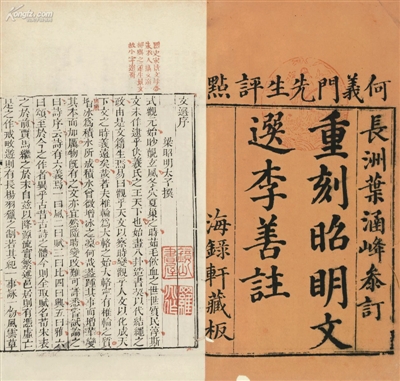 何義門先生評點
長洲葉涵峰叅訂
重刻昭明文
選李善註
海録軒藏板
文選序
梁昭明太子撰
式觀元始眇覿玄風冬穴夏巢之時茹毛飲血之世世質民淳斯
文未作逮乎伏羲氏之王天下也始畫八卦造書契以代結繩之
政由是文籍生焉易曰觀乎天文以察時變觀乎人文以化成天
下文之時義遠矣哉若夫椎輪為大輅之始大輅寧有椎輪之質
增冰為積水所成積水曾微增冰之凜何哉葢踵其事而增華變
其本而加厲物既有之文亦宜然隨時變改難可詳悉嘗試論之
曰詩序云詩有六義焉一曰風二曰賦三曰比四曰興五曰雅六
曰頌至於今之作者異乎古昔古詩之體今則全取賦名荀宋表
之於前賈馬繼之於末自茲以降源流實繁述邑居則有憑虛亡
是之作戒畋遊則有長楊羽獵之制若其紀一事詠一物風雲草